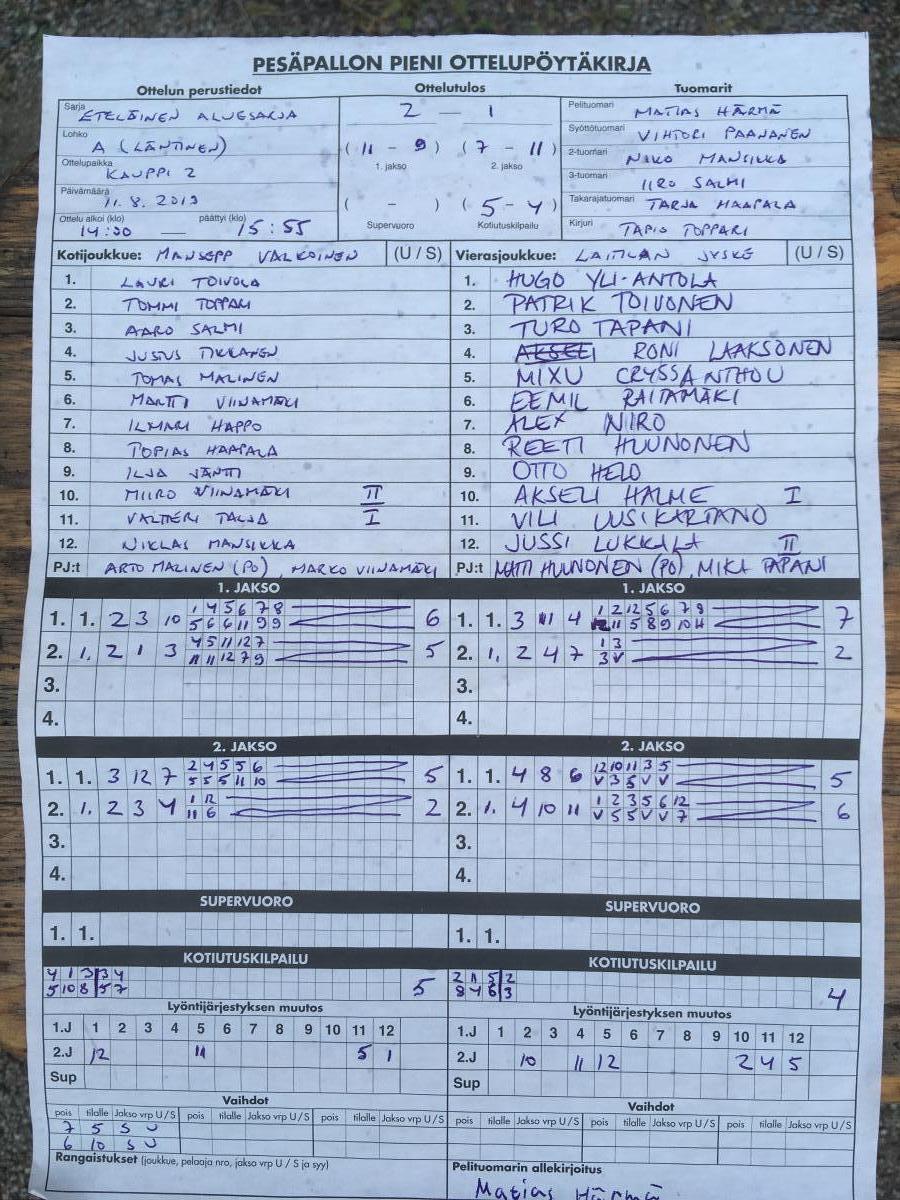 PESÄPALLON PIENI OTTELUPÖYTÄKIRJA
Ottelun perustiedot Ottelutulos Tuomarit
Sarja ETELÄINEN ALUESARJA 2 — 1 Pelituomari MATIAS HÄRMÄ
Lohko A (LÄNTINEN) (11 - 9) (7 - 11) Syöttötuomari VIHTORI PAANANEN
1. jakso 2. jakso
Ottelupaikka KAUPPI 2 2-tuomari NIKO MANSIKKA
Päivämäärä 11.8.2019 ( - ) 5 - 4 ) 3-tuomari IIRO SALMI
Takarajatuomari TARJA HAAPALA
Ottelu alkoi (klo) 14:30 — päättyi (klo) 15:55 Supervuoro Kotiutuskilpailu Kirjuri TAPIO TOPPARI
Kotijoukkue: MANSEPP VALKOINEN (U / S) Vierasjoukkue: LAITILAN JYSKE (U / S)
1. LAURI TOIVOLA 1. HUGO YLI-ANTOLA
2. TOMMI TOPPARI 2. PATRIK TOIVONEN
3. AARO SALMI 3. TURO TAPANI
4. JUSTUS TIKKANEN 4. RONI LAAKSONEN
5. TOMAS MALINEN 5. MIXU CRYSSANTHOU
6. MARTTI VIINAMÄKI 6. EEMIL RAITAMÄKI
7. ILMARI HAPPO 7. ALEX NIRO
8. TOPIAS HAAPALA 8. REETI HUUNONEN
9. ILJA JÄNTTI 9. OTTO HELO
10. MIIRO VIINAMÄKI II 10. AKSELI HALME I
11. VALTTERI TALJA I 11. VILI UUSIKARTANO
12. NIKLAS MANSIKKA 12. JUSSI LUKKALA II
PJ:t ARTO MALINEN (PO), MARKO VIINAMÄKI PJ:t MATTI HUUNONEN (PO), MIKA TAPANI
1. JAKSO 1. JAKSO
1. 1. 2 3 10 1 4 5 6 7 8 6 1. 1. 3 11 4 1 2 12 5 6 7 9 7
5 6 6 11 9 9 11 5 8 9 10 11
2. 1. 2 1 3 4 5 11 12 7 5 2. 1. 2 4 7 1 3 2
11 11 12 7 9 3 V
3. 3.
4. 4.
2. JAKSO 2. JAKSO
1. 1. 3 12 7 2 4 5 5 6 5 1. 1. 4 8 6 12 10 11 3 5 5
5 5 5 11 10 V 3 5 V V
2. 1. 2 3 4 1 12 2 2. 1. 4 10 11 1 2 3 5 6 12 6
11 6 V 5 5 V V 7
3. 3.
4. 4.
SUPERVUORO SUPERVUORO
1. 1. 1. 1.
KOTIUTUSKILPAILU KOTIUTUSKILPAILU
4 1 3 3 4 5 2 11 5 2 4
5 10 8 5 7 8 4 6 3
Lyöntijärjestyksen muutos Lyöntijärjestyksen muutos
1.J 1 2 3 4 5 6 7 8 9 10 11 12 1.J 1 2 3 4 5 6 7 8 9 10 11 12
2.J 12 11 5 1 2.J 10 11 12 2 4 5
Sup Sup
Vaihdot Vaihdot
pois tilalle Jakso vrp U / S pois tilalle Jakso vrp U / S pois tilalle Jakso vrp U / S pois tilalle Jakso vrp U / S pois tilalle Jakso vrp U / S pois tilalle Jakso vrp U / S
7 5 S U
6 10 S U
Rangaistukset (joukkue, pelaaja nro, jakso vrp U / S ja syy) Pelituomarin allekirjoitus
Matias Härmä